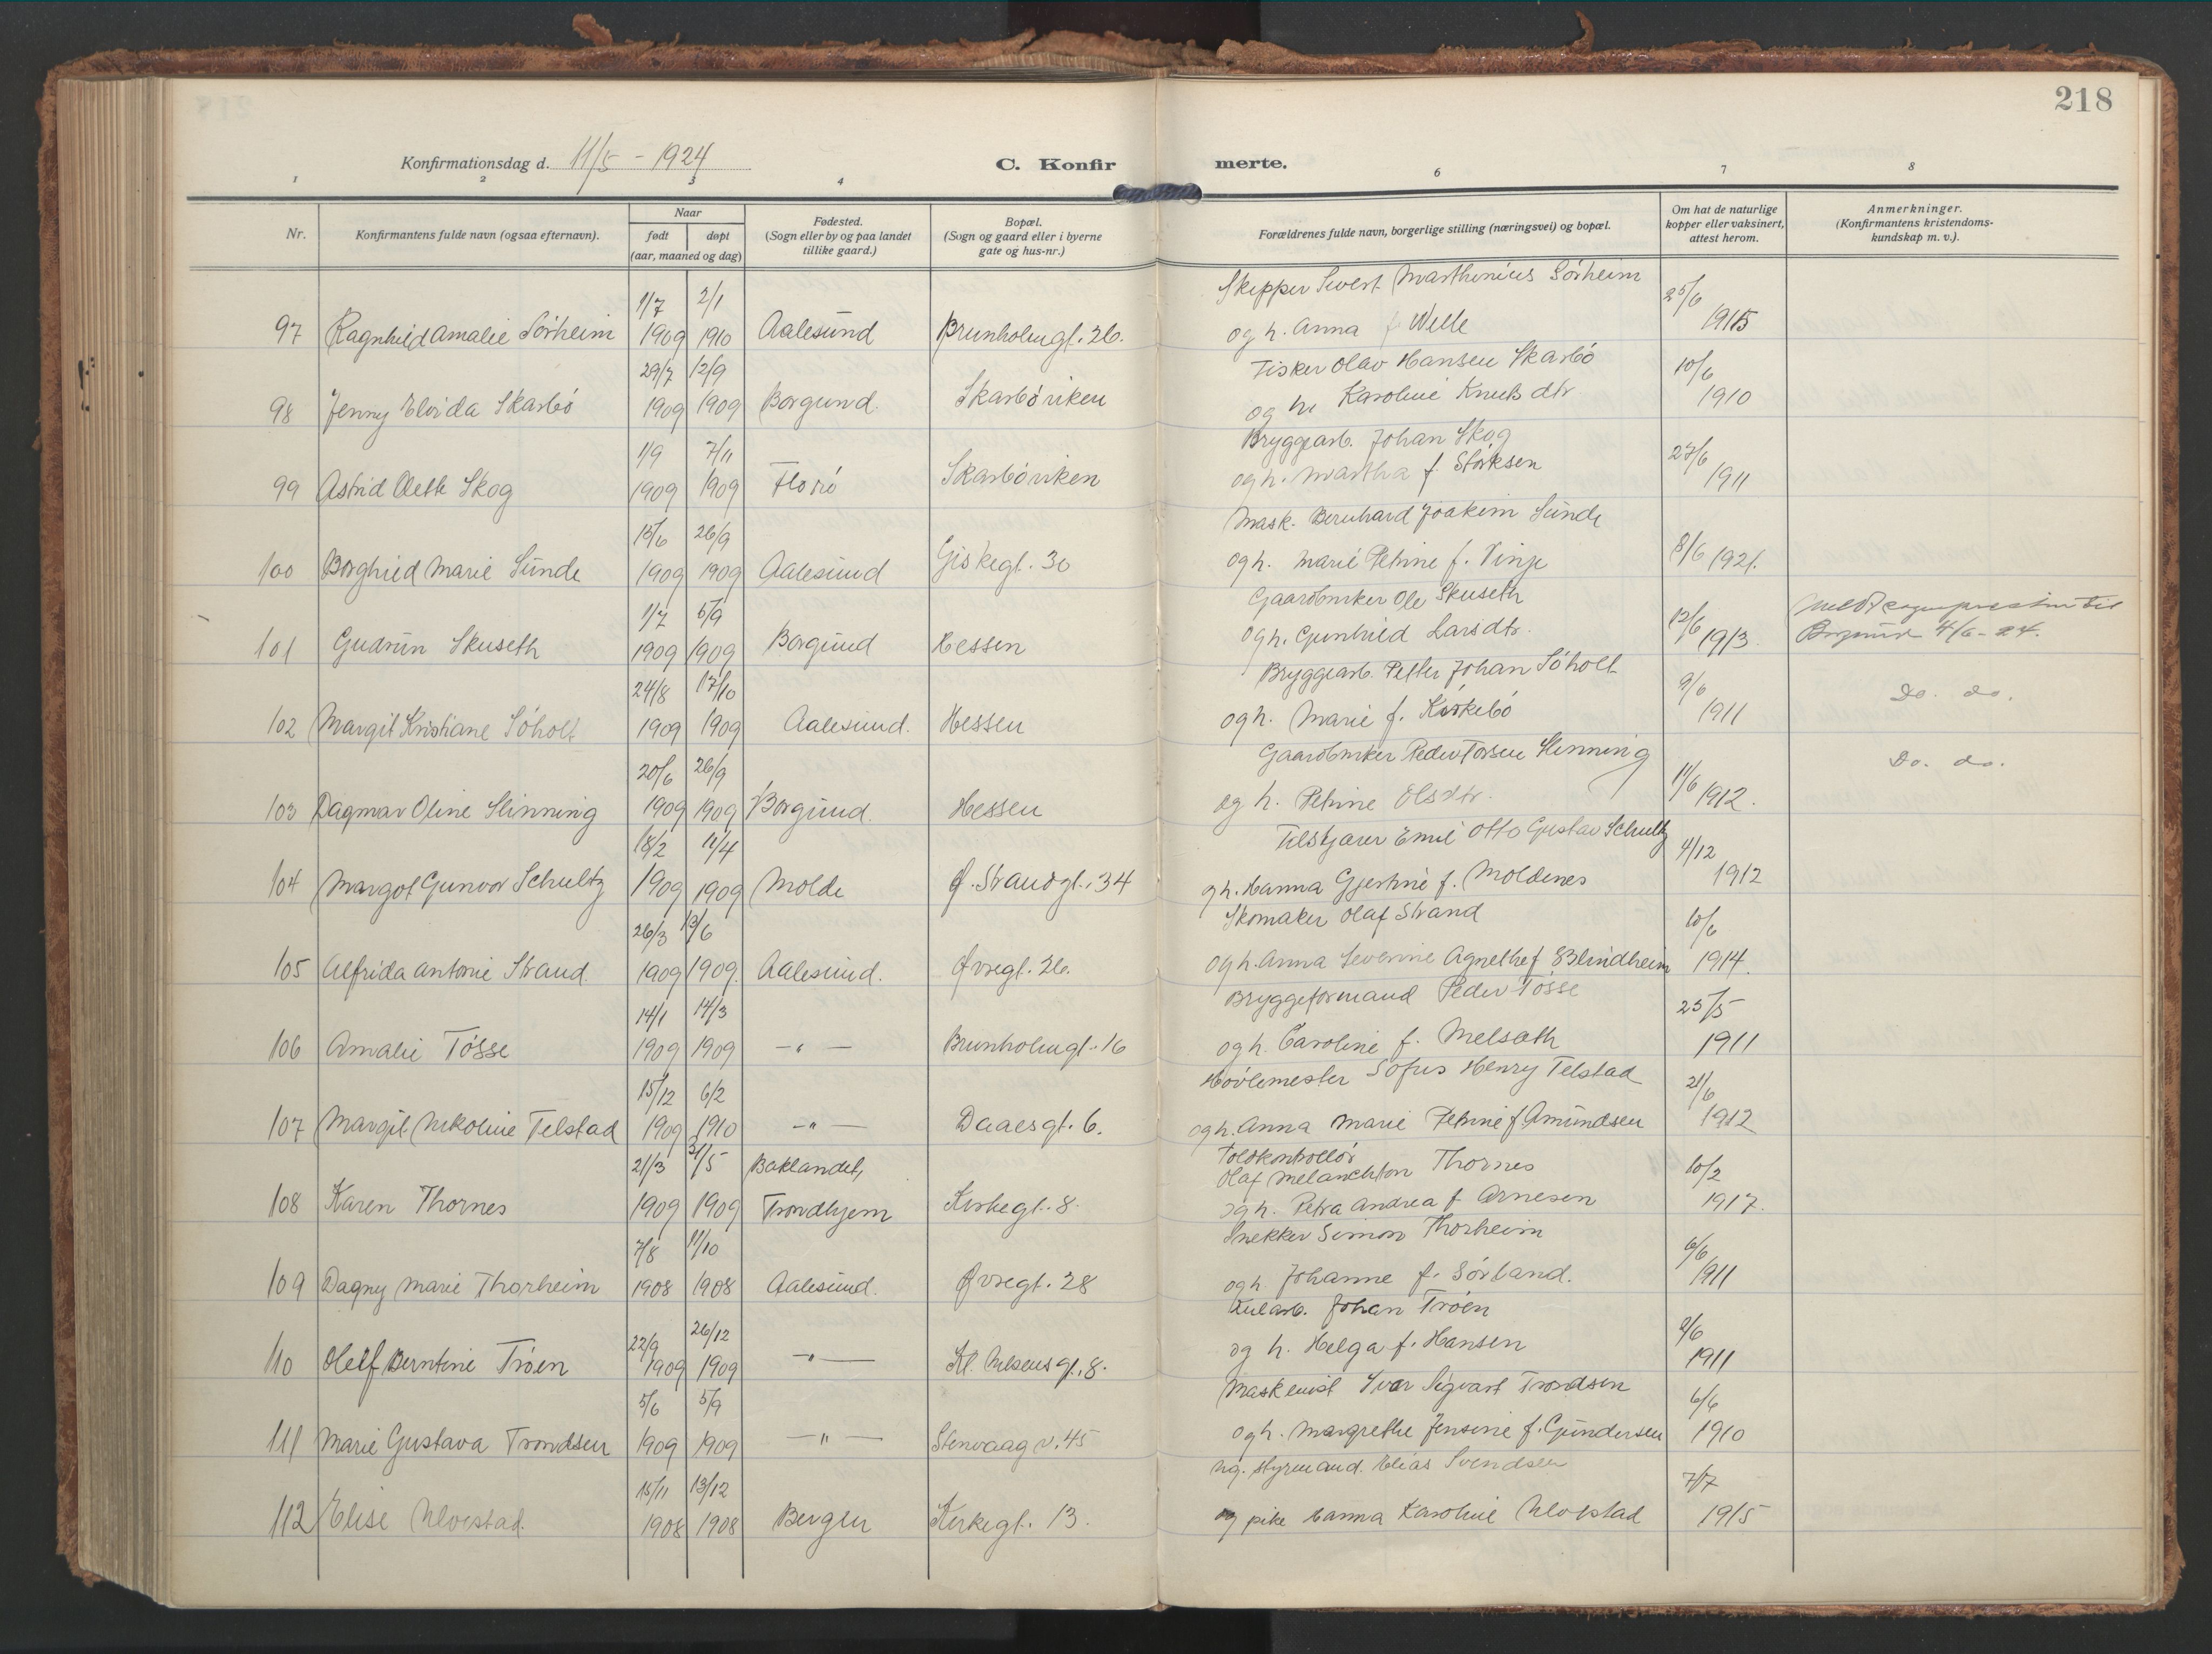 218
Konfirmationsdag d. 11/5 - 1924
C. Konfirmerte.
1 2 3 4 6 7 8
Nr.
Konfirmantens fulde navn (ogsaa efternavn).
Naar
født døpt
(aar, maaned og dag)
Fødested.
(Sogn eller by og paa landet
tillike gaard.)
Bopæl.
(Sogn og gaard eller i byerne
gate og hus-nr.)
Forældrenes fulde navn, borgerlige stilling (næringsvei) og bopæl.
Om hat de naturlige
kopper eller vaksinert,
attest herom.
Anmerkninger.
(Konfirmantens kristendoms-
kundskap m. v.).
1/7 2/1 Skipper Sivert Marthinius Sörheim 25/6
97 Ragnhild Amalie Sörheim 1909 1910 Aalesund Brunholmgt. 26. og h. Anna f Welle 1915
29/7 12/9 Fisker Olav Hansen Skarbö 10/6
98 Jenny Elvida Skarbö 1909 1909 Borgund. Skarböviken og h. Karoline Knutsdtr 1910
1/9 7/11 Bryggearb. Johan Skog 27/6
99 Astrid Skog 1909 1909 Florö Skarböviken og h. Martha f Störksen 1911
15/6 26/9 Mask. Bernhard Joakim Sunde
100 Borghild Marie Sunde 1909 1909 Aalesund Giskegt. 30 og h. Marie Petrine f. Vinje 8/6 1921.
1/7 5/9 Gaardbruker Ole Skuseth 12/6
101 Gudrun Skuseth 1909 1909 Borgund Hessen og h. Gunhild Larsdtr. 1913. Borgund 4/6-24.
24/8 17/10 Bryggearb. Petter Johan Söholt 9/6 Do. do.
102 Margit Kristiane Söholt 1909 1909 Aalesund. Hessen og h. Marie f. Kirkebö 1911
20/6 26/9 Gaardbruker Peder Torsen Slinning Do. do.
103 Dagmar Oline Slinning 1909 1909 Borgund. Hessen og h. Petrine Olsdtr. 11/6 1912.
18/2 11/4 Emil Otto Gustav Schultz 4/12
104 Margot Gunvor Schultz 1909 1909 Molde Ø. Strandgt. 34 og h. Hanna Gjertine f. Moldenes 1912
26/3 13/6 Skomaker Olaf Strand 10/6
105 Alfrida Antonie Strand 1909 1909. Aalesund. Øvregt. 26. og h. Anna Severine Agnethe f Blindheim 1914.
14/1 14/3 Bryggeformand Peder Tösse 25/5
106 Amalie Tösse 1909 1909 —„— Brunholmgt. 16 og h. Caroline f. Melsæth 1911
15/12 6/2 Hövlemester Sofus Henry Telstad 21/6
107 Margit Nikoline Telstad 1909 1910 —„— Daaesgt. 6. og h. Anna Marie Petrine f. Amundsen 1912
21/3 31/5 Baklandet, Toldkontrollör
Olaf Melanchton Thornes 10/2
108 Karen Thornes 1909 1909 Trondhjem Kirkegt. 8. og h. Petra Andrea f Arnesen 1917.
7/8 11/10 Snekker Simon Thorheim 6/6
109 Dagny Marie Thorheim 1908 1908 Aalesund. Øvregt. 28 og h. Johanne f. Sörland. 1911
22/9 26/12 Kularb. Johan Tröen 9/6
110 Berntine Tröen 1909 1909 —„— Kl. Nilsens gt. 8. og h. Helga f. Hansen 1911
5/6 5/9 Maskinist Ivar Sigvart Trondsen 6/6
111 Marie Gustava Trondsen 1909 1909 —„— Stenvaag v. 45 og h. Margrethe Jensine f. Gundersen 1910
15/11 13/12 ug. styrmand. Elias Svendsen 7/7
112 Elise Ulvestad. 1908 1908 Bergen Kirkegt. 13. og pike Hanna Karoline Ulvestad 1915